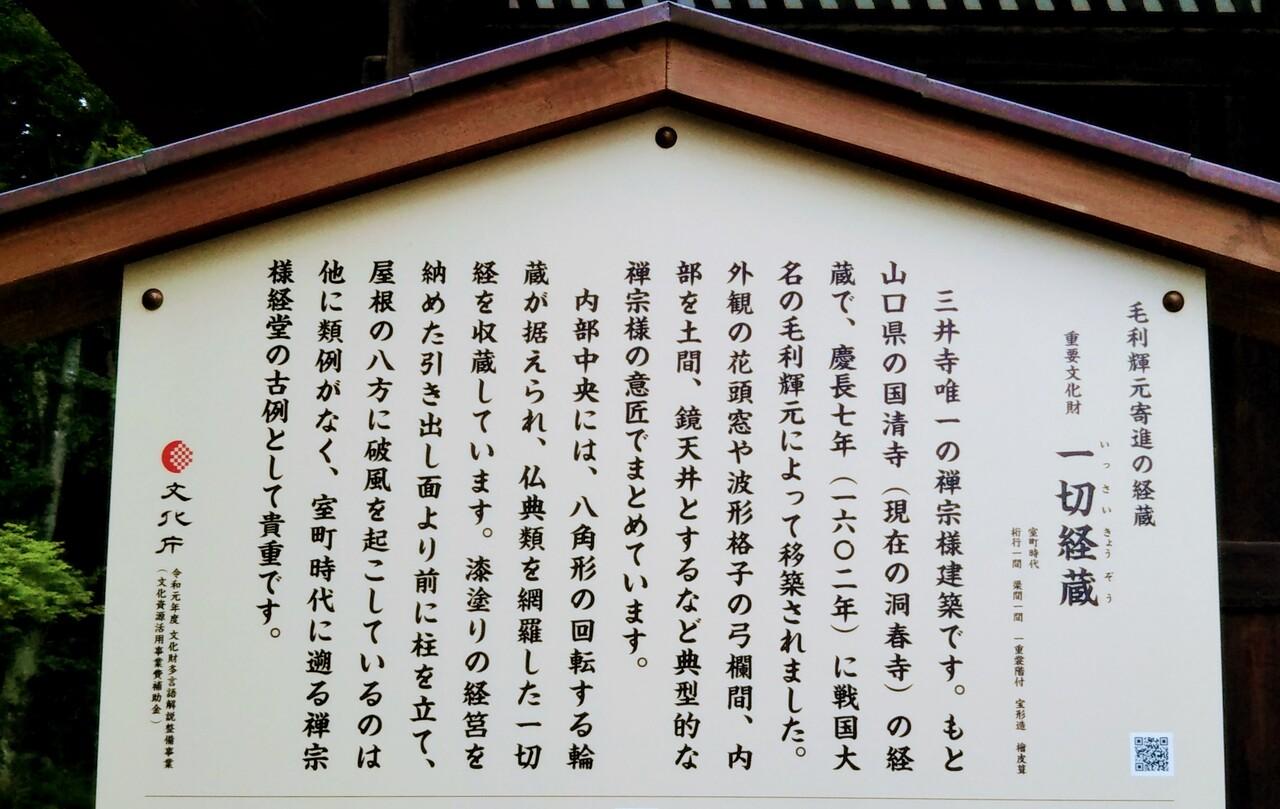 毛利輝元寄進の経蔵
重要文化財
一切経蔵
いっさいきょうぞう
室町時代
桁行一間 梁間一間 一重裳階付 宝形造 檜皮葺
三井寺唯一の禅宗様建築です。もと
山口県の国清寺（現在の洞春寺）の経
蔵で、慶長七年（一六〇二年）に戦国大
名の毛利輝元によって移築されました。
外観の花頭窓や波形格子の弓欄間、内
部を土間、鏡天井とするなど典型的な
禅宗様の意匠でまとめています。
内部中央には、八角形の回転する輪
蔵が据えられ、仏典類を網羅した一切
経を収蔵しています。漆塗りの経筥を
納めた引き出し面より前に柱を立て、
屋根の八方に破風を起こしているのは
他に類例がなく、室町時代に遡る禅宗
様経堂の古例として貴重です。
文化庁
令和元年度 文化財多言語解説整備事業
（文化資源活用事業費補助金）